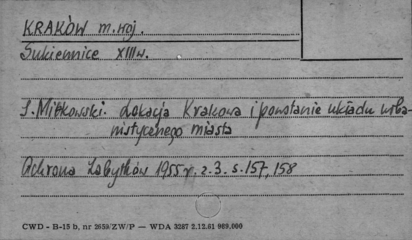 KRAKÓW m. woj.
Sukiennice XIII w.
S. Miłkowski. Lokacja Krakowa i powstanie układu urba-
nistycznego miasta
Ochrona Zabytków 1955 r, z. 3. s. 157, 158
CWD - B-15 b, nr 2659/ZW/P — WDA 3287 2.12.81 969,000